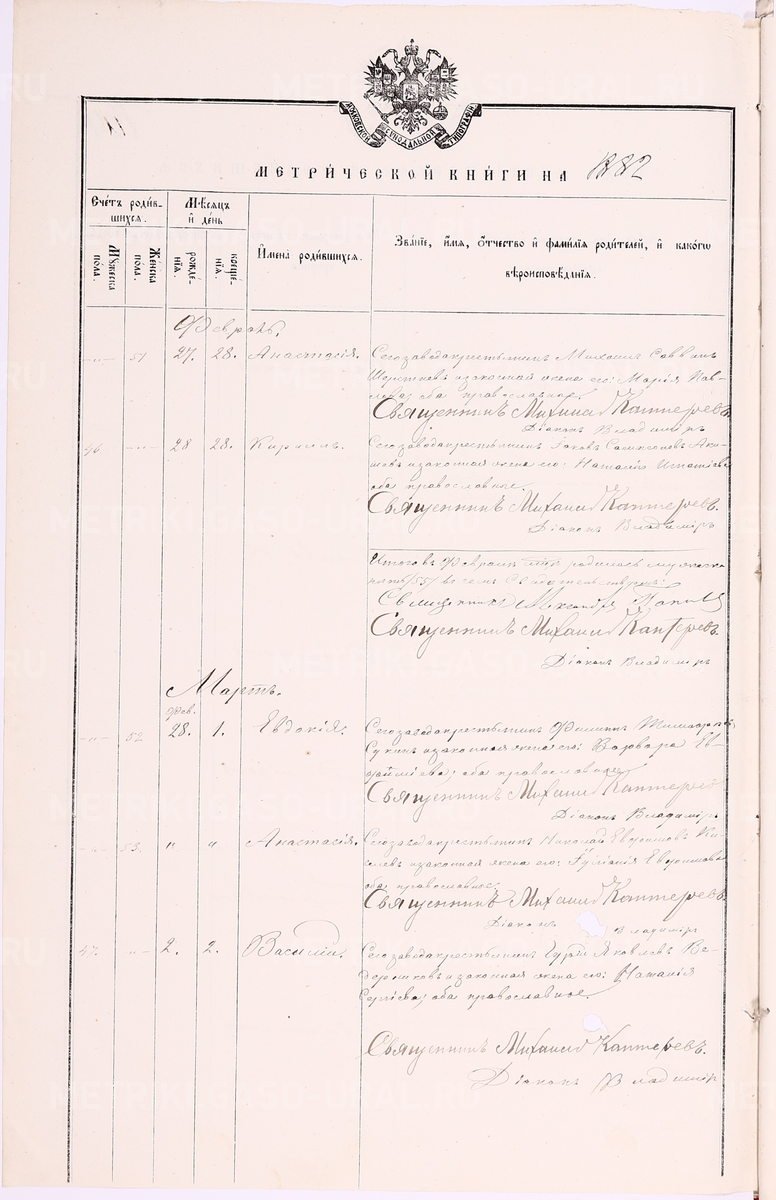 МОСКОВСКОЙ СѴНОДАЛЬНОЙ ТИПОГРАФІИ
МЕТРИ́ЧЕСКОЙ КНИ́ГИ НА 1882
Сче́тъ роди́в-
шихся.
Мꙋ́жеска
по́ла.
Же́нска
по́ла.
Мѣ́сяцъ
и҆ де́нь
рожде́-
нїя.
креще́-
нїя.
И҆мена̀ роди́вшихся.
Зва́нїе, и҆́мя, ѻ҆́тчество и҆ фами́лїя роди́телей, и҆ како́гѡ
вѣроисповѣ́данїя.
Февраль.
51 27. 28. Анастасія.
Сегозаводакрестьянинъ Михаилъ Саввинъ
изаконная жена его: Марія Пав-
лова; оба православные.
Священникъ Михаилъ Каптеревъ.
Діаконъ Владиміръ
46 28 28. Кириллъ.
Сегозаводакрестьянинъ Іаковъ Сампсоновъ Аки-
шевъ изаконная жена его: Наталія Игнатіева
оба православные.
Священникъ Михаилъ Каптеревъ.
Діаконъ Владиміръ
Итоговъ Февралѣ родилось мужеска
Священникъ Александръ Поповъ
Священникъ Михаилъ Каптеревъ.
Діаконъ Владиміръ
Мартъ.
Фев.
52 28. 1. Евдокія.
Сегозаводакрестьянинъ Филиппъ
изаконная жена его: Варвара Ев-
фиміева; оба православные
Священникъ Михаилъ Каптеревъ
Діаконъ Владиміръ
53. " " Анастасія.
Сегозаводакрестьянинъ Николай Евфимовъ Ки-
селевъ изаконная жена его: Іуліанія Евфимова
оба православные.
Священникъ Михаилъ Каптеревъ.
Діаконъ Владиміръ
47. 2. 2. Василій.
Сегозаводакрестьянинъ Гурій Яковлевъ Ве-
дерниковъ изаконная жена его: Наталія
Сергіева; оба православное.
Священникъ Михаилъ Каптеревъ.
Діаконъ Владиміръ